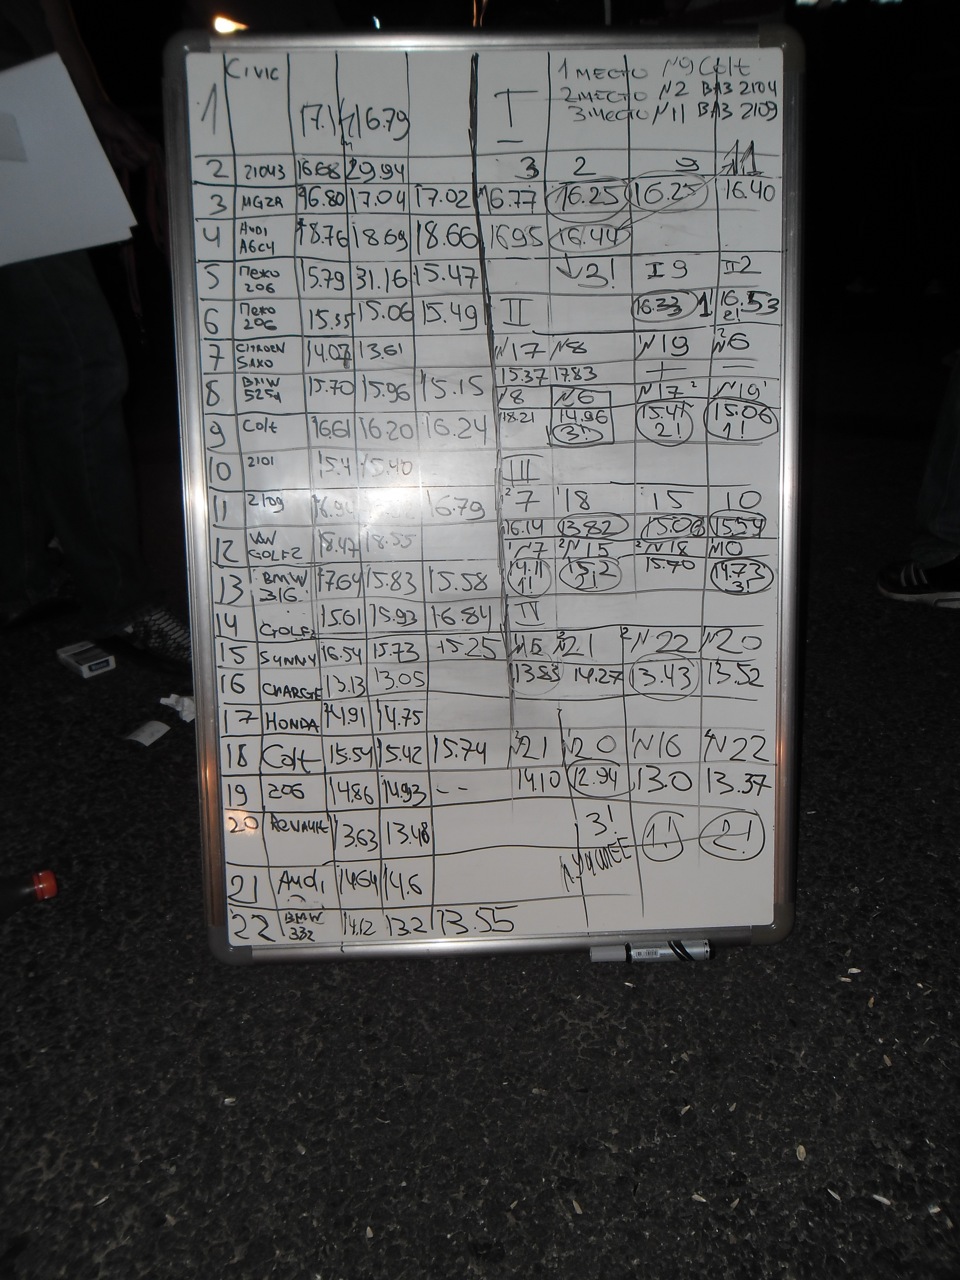 Civic 1 МЕСТО №9 Colt
1 17.14 16.79 I 2 МЕСТО №2 ВАЗ 2104
3 МЕСТО №11 ВАЗ 2109
2 21043 16.68 29.94 3 2 9 11
3 MGZR 16.80 17.04 17.02 16.77 16.25 16.25 16.40
4 AUDI A6C4 18.76 18.69 18.66 16.95 16.44
5 Пежо 206 15.79 31.16 15.47 3! I 9 II 2
6 Пежо 206 15.35 15.06 15.49 II 16.33 1 16.53 2!
7 CITROEN SAXO 14.07 13.61 №17 №8 №19 №6
15.37 17.83
8 BMW 525 15.70 15.96 15.15 №8 №6 №17 №19
9 Colt 16.61 16.20 16.24 18.21 14.96 3! 15.41 2! 15.06 1!
10 2101 15.4 15.40 III
11 2109 16.79 7 18 15 10
16.14 13.82 15.06 15.54
12 VW GOLF2 18.47 18.55 №7 №15 №18 №10
13 BMW 316 17.64 15.83 15.58 14.11 1! 15.2 2! 15.70 14.73 3!
14 GOLF2 15.61 15.93 16.84 IV
15 SUNNY 16.54 15.73 15.25 №21 №22 №20
16 CHARGE 13.13 13.05 13.83 14.27 13.43 13.52
17 HONDA 14.91 14.75
18 Colt 15.54 15.42 15.74 №21 №20 №16 №22
19 206 14.86 14.93 -- 14.10 12.94 13.0 13.37
20 Renault 13.63 13.48 3! 1! 2!
ЛУЧШЕЕ
21 Audi 14.64 14.6
22 BMW 332 14.12 13.2 13.55